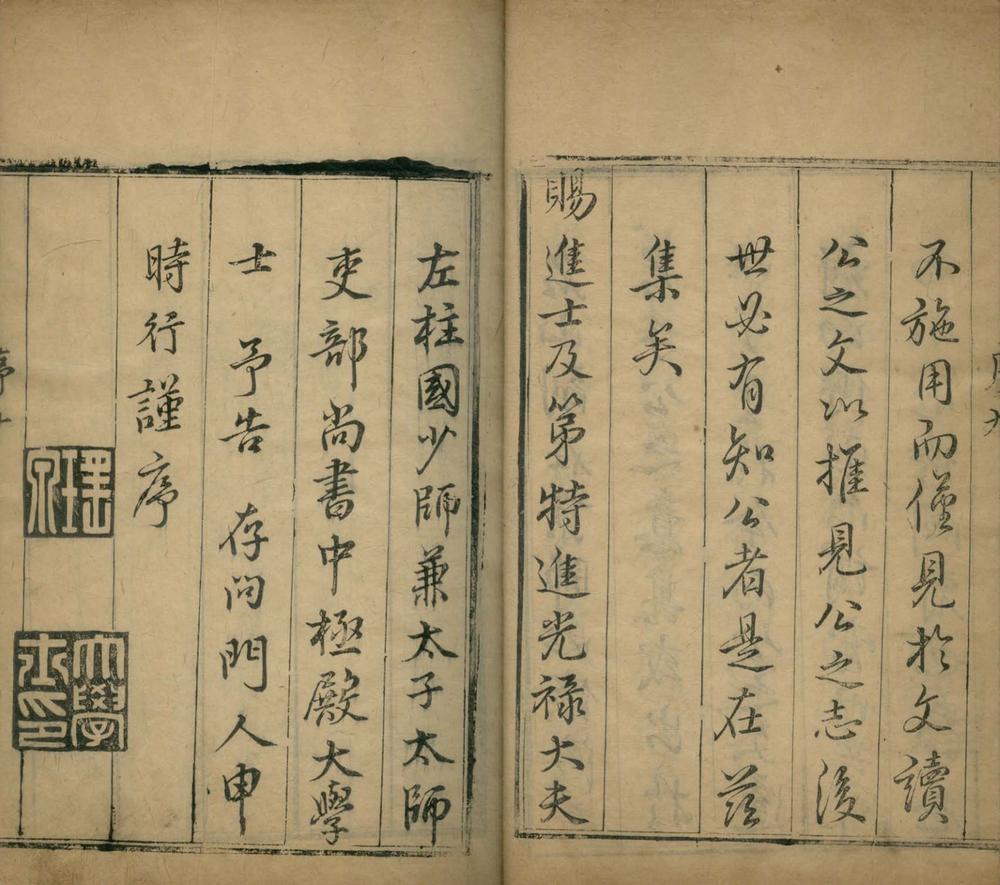 不施用而僅見於文讀
公之文以推見公之志後
世必有知公者是在茲
集矣
賜進士及第特進光祿大夫
左柱國少師兼太子太師
吏部尚書中極殿大學
士予告存問門人申
時行謹序
瑤泉
大學士印